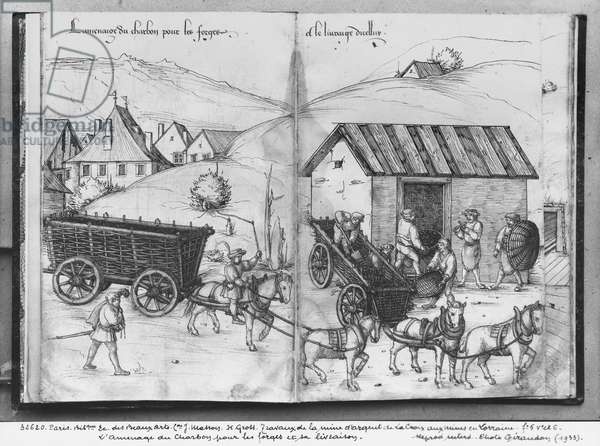 Lamenaige du charbon pour les forges
et le livraige dicelluy
bridgeman
images
36620. Paris. Bibl. Ec. des Beaux arts. J. Masson. H. Gross. Travaux de la mine d'argent de La Croix aux mines en Lorraine. f. 5 v. et 6.
L'amenage du charbon pour les forges et sa livraison. Reprod. interd. Photo Giraudon (1933).